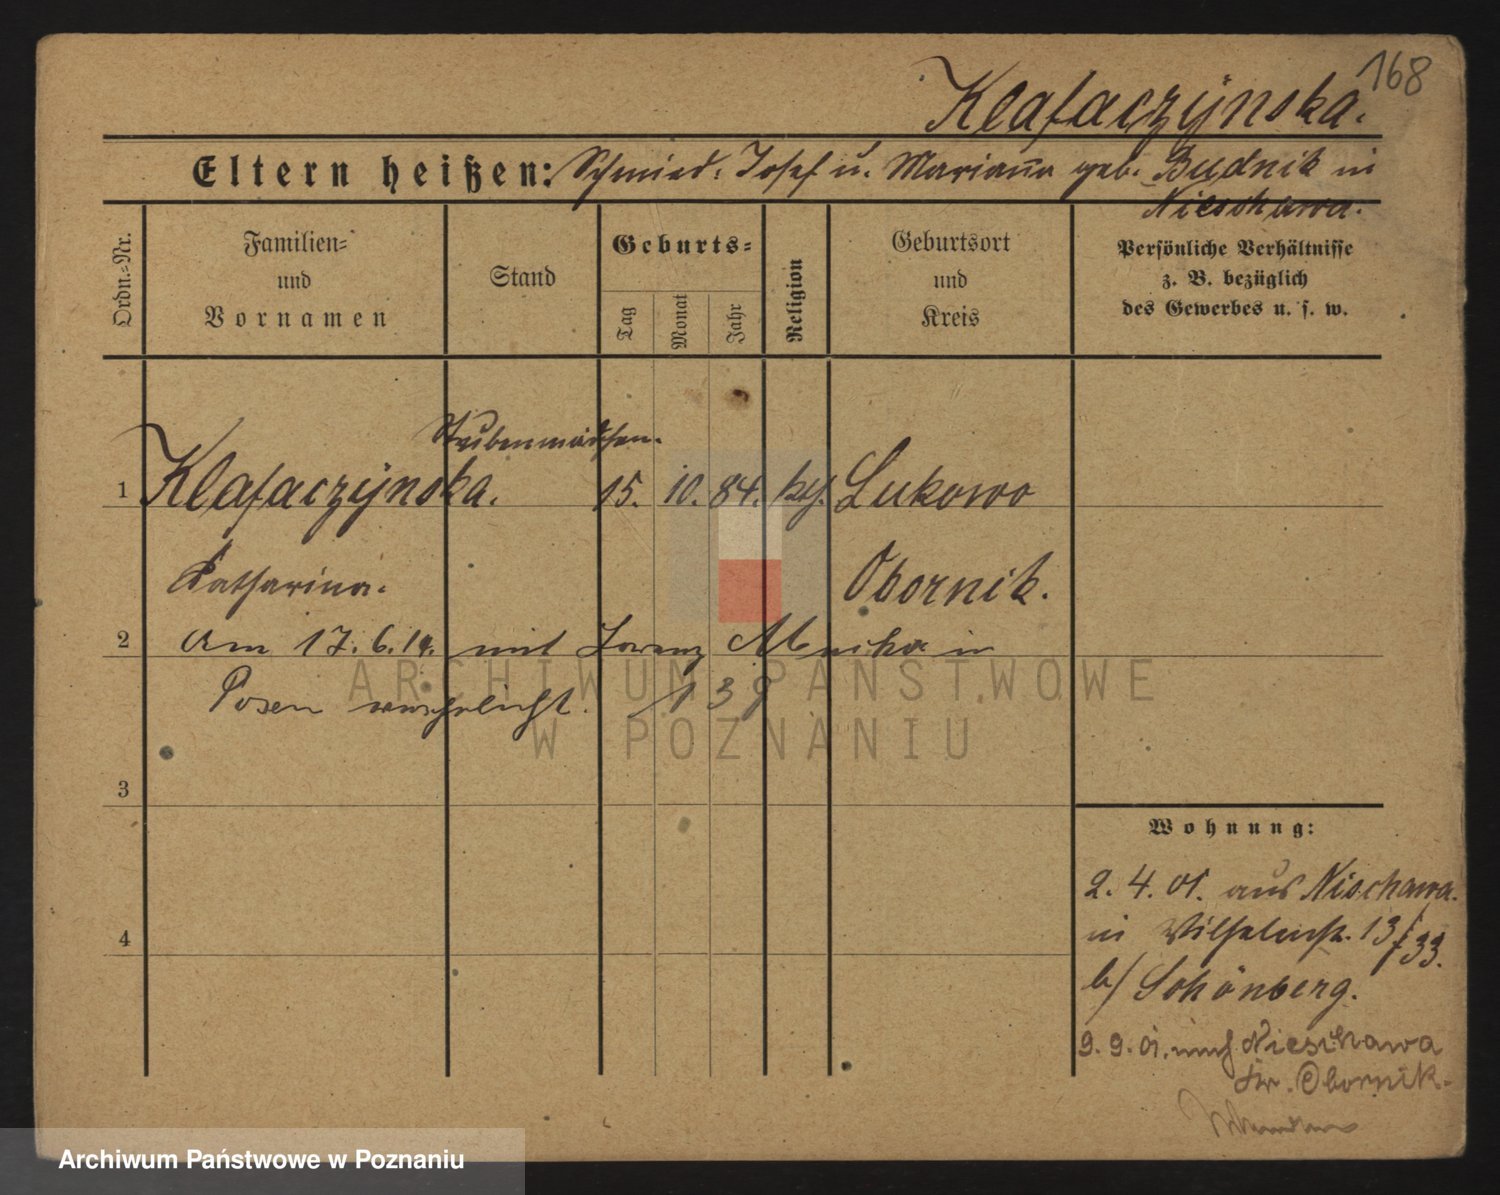 168
Klafaczÿnska.
Eltern heißen: Schmied. Josef u. Marianna geb. Budnik in
Nieschawa.
Ordn.-Nr.
Familien-
und
Vornamen
Stand
Geburts-
Tag
Monat
Jahr
Religion
Geburtsort
und
Kreis
Persönliche Verhältnisse
z. B. bezüglich
des Gewerbes u. s. w.
Stubenmädchen.
1 Klafaczÿnska. 15. 10. 84. kth. Lukowo
Katharina. Obornik.
2 am 17.6.14. mit Lorenz in
Posen verehelicht.
3
4
Wohnung:
2. 4. 01. aus Nischawa.
in Wilhelmstr. 13/33.
b/ Schönberg.
9. 9. 01. nach Nieschawa
Kr. Obornik.
ARCHIWUM PAŃSTWOWE
W POZNANIU
Archiwum Państwowe w Poznaniu